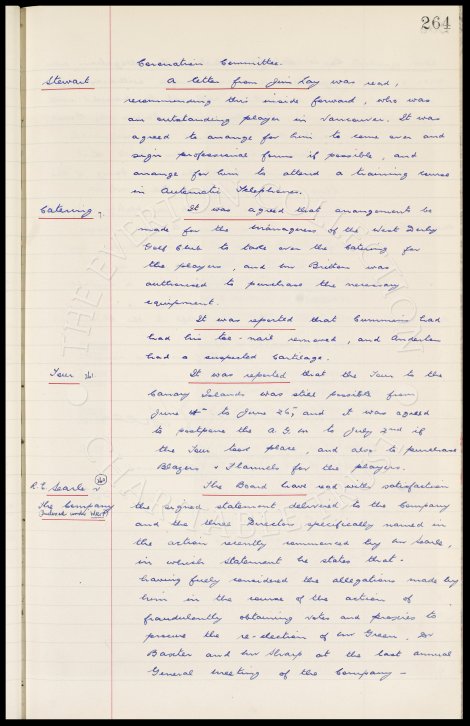 264
Coronation Committee.
Stewart
A letter from Jim Lay was read,
recommending this inside forward, who was
an outstanding player in Vancouver. It was
agreed to arrange for him to come over and
sign professional forms if possible, and
arrange for him to attend a training course
in Automatic Telephones.
Catering
It was agreed that arrangements be
made for the Manageress of the West Derby
Gold Club to take over the Catering for
the players, and Mr Britton was
authorised to purchase the necessary
equipment.
It was reported that Cummins had
had his toe-nail removed, and Anderton
had a suspected Cartilage.
Tour 261
It was reported that the Tour to the
Canary Islands was still possible from
June 4th to June 26, and it was agreed
to postpone the A.G.M to July 2nd if
the Tour took place, and also to purchase
Blazers & Flannels for the players.
R.E. Searle v
The Company
The Board have read with satisfaction
the signed statement delivered to the Company
and the three Director specifically named in
the action recently commenced by Mr Searle,
in which statement he states that -
having fully considered the allegations made by
him in the course of the action of
fraudulently obtaining votes and proxies to
procure the re-election of Mr Green, Dr
Baxter and Mr Sharp at the last annual
General Meeting of the Company -
THE EVERTON COLLECTION
CHARITABLE TRUST